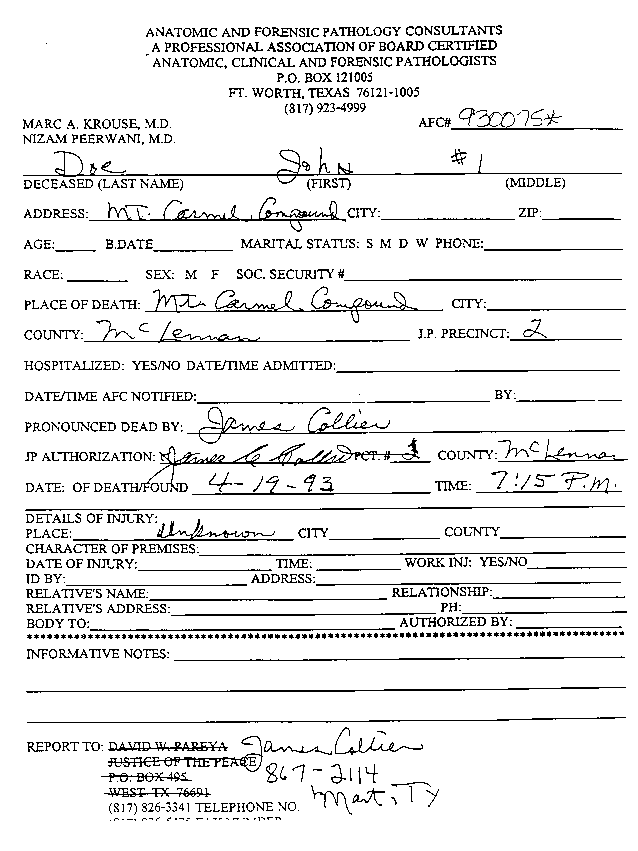 ANATOMIC AND FORENSIC PATHOLOGY CONSULTANTS
A PROFESSIONAL ASSOCIATION OF BOARD CERTIFIED
ANATOMIC, CLINICAL AND FORENSIC PATHOLOGISTS
P.O. BOX 121005
FT. WORTH, TEXAS 76121-1005
(817) 923-4999
MARC A. KROUSE, M.D. AFC# 930075*
NIZAM PEERWANI, M.D.
Doe John #1
DECEASED (LAST NAME) (FIRST) (MIDDLE)
ADDRESS: Mt. Carmel Compound CITY: ZIP:
AGE: B.DATE MARITAL STATUS: S M D W PHONE:
RACE: SEX: M F SOC. SECURITY #
PLACE OF DEATH: Mt. Carmel Compound CITY:
COUNTY: McLennan J.P. PRECINCT: 2
HOSPITALIZED: YES/NO DATE/TIME ADMITTED:
DATE/TIME AFC NOTIFIED: BY:
PRONOUNCED DEAD BY: James Collier
JP AUTHORIZATION: James PCT. # COUNTY: McLennan
DATE: OF DEATH/FOUND 4-19-93 TIME: 7:15 P.M.
DETAILS OF INJURY:
PLACE: Unknown CITY COUNTY
CHARACTER OF PREMISES:
DATE OF INJURY: TIME: WORK INJ: YES/NO
ID BY: ADDRESS:
RELATIVE'S NAME: RELATIONSHIP:
RELATIVE'S ADDRESS: PH:
BODY TO: AUTHORIZED BY:
INFORMATIVE NOTES:
REPORT TO: DAVID W. PAREYA James Collier
JUSTICE OF THE PEACE
P.O. BOX 495 867-2114
WEST TX 76691
(817) 826-3341 TELEPHONE NO. Mart, TX